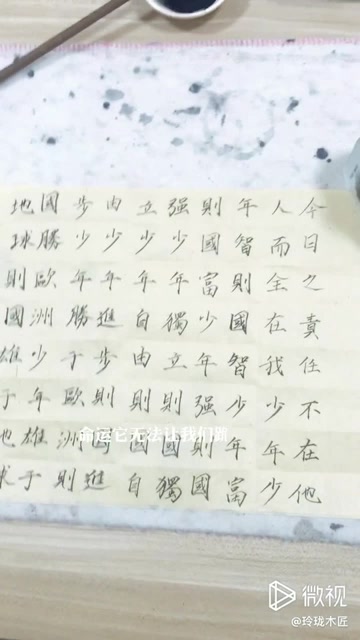 今日之責任不在他
人而全在我少年少
年智則國智少年富
則國富少年强則國
强少年獨立則國獨
立少年自由則國自
由少年進步則國進
步少年勝于歐洲則
國勝歐洲少年雄于
地球則國雄于地球
命运它无法让我们跪
微视
@玲珑木匠